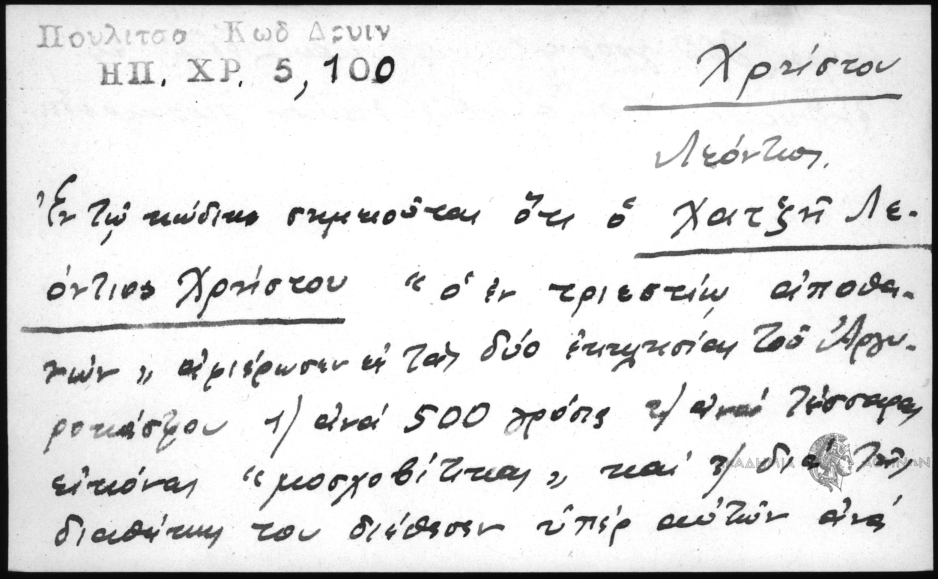 Πουλιτσα Κωδ Δρυιν
ΗΠ. ΧΡ. 5, 100
Χρήστου
Λεόντιος.
Ἐν τῷ κώδικι σημειοῦται ὅτι ὁ Χατζῆ Λε-
όντιος Χρήστου "ὁ ἐν τριεστίῳ ἀποθα-
νών" ἀφιέρωσεν εἰς τὰς δύο ἐκκλησίας τοῦ Ἀργυ-
ροκάστρου 1) ἀνά 500 γρόσια 2) ἀνά τέσσαρας
εἰκόνας "μοσχοβίτικας" καί 3) διά τῆς
διαθήκης του διέθεσεν ὑπέρ αὐτῶν ἀνά
ΑΚΑΔΗΜΙΑ ΑΘΗΝΩΝ